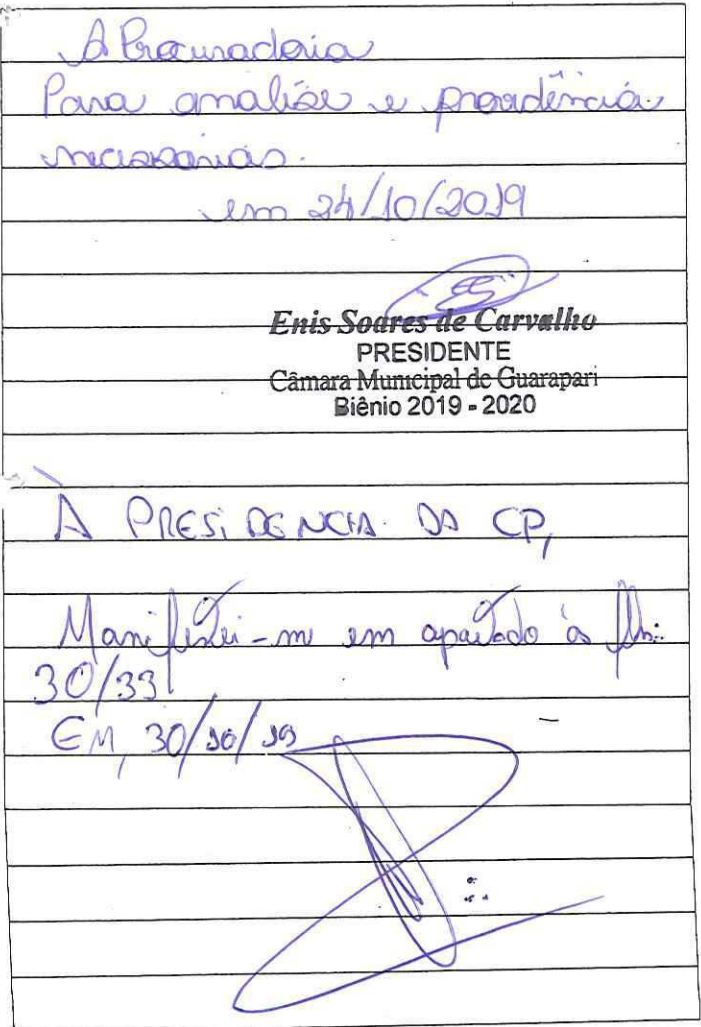 A Procuradoria
Para analise e providência
necessarias.
em 24/10/2019
Enis Soares de Carvalho
PRESIDENTE
Câmara Municipal de Guarapari
Biênio 2019 - 2020
À PRESIDENCIA DA CP,
Manifestei-me em apartado às fls.
30/33
EM, 30/10/19